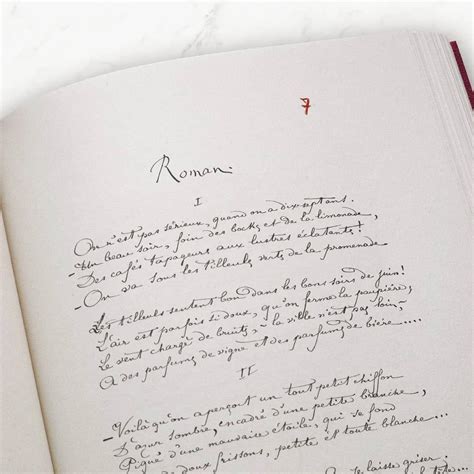 7
Roman.
I
On n'est pas sérieux, quand on a dix-sept ans.
- Un beau soir, foin des bocks et de la limonade,
Des cafés tapageurs aux lustres éclatants!
- On va sous les tilleuls verts de la promenade
Les tilleuls sentent bon dans les bons soirs de juin!
L'air est parfois si doux, qu'on ferme la paupière;
Le vent chargé de bruits, - la ville n'est pas loin, -
A des parfums de vigne et des parfums de bière....
II
- Voilà qu'on aperçoit un tout petit chiffon
D'azur sombre, encadré d'une petite branche,
Piqué d'une mauvaise étoile, qui se fond
doux frissons, petite et toute blanche...
se laisse griser.
tête...